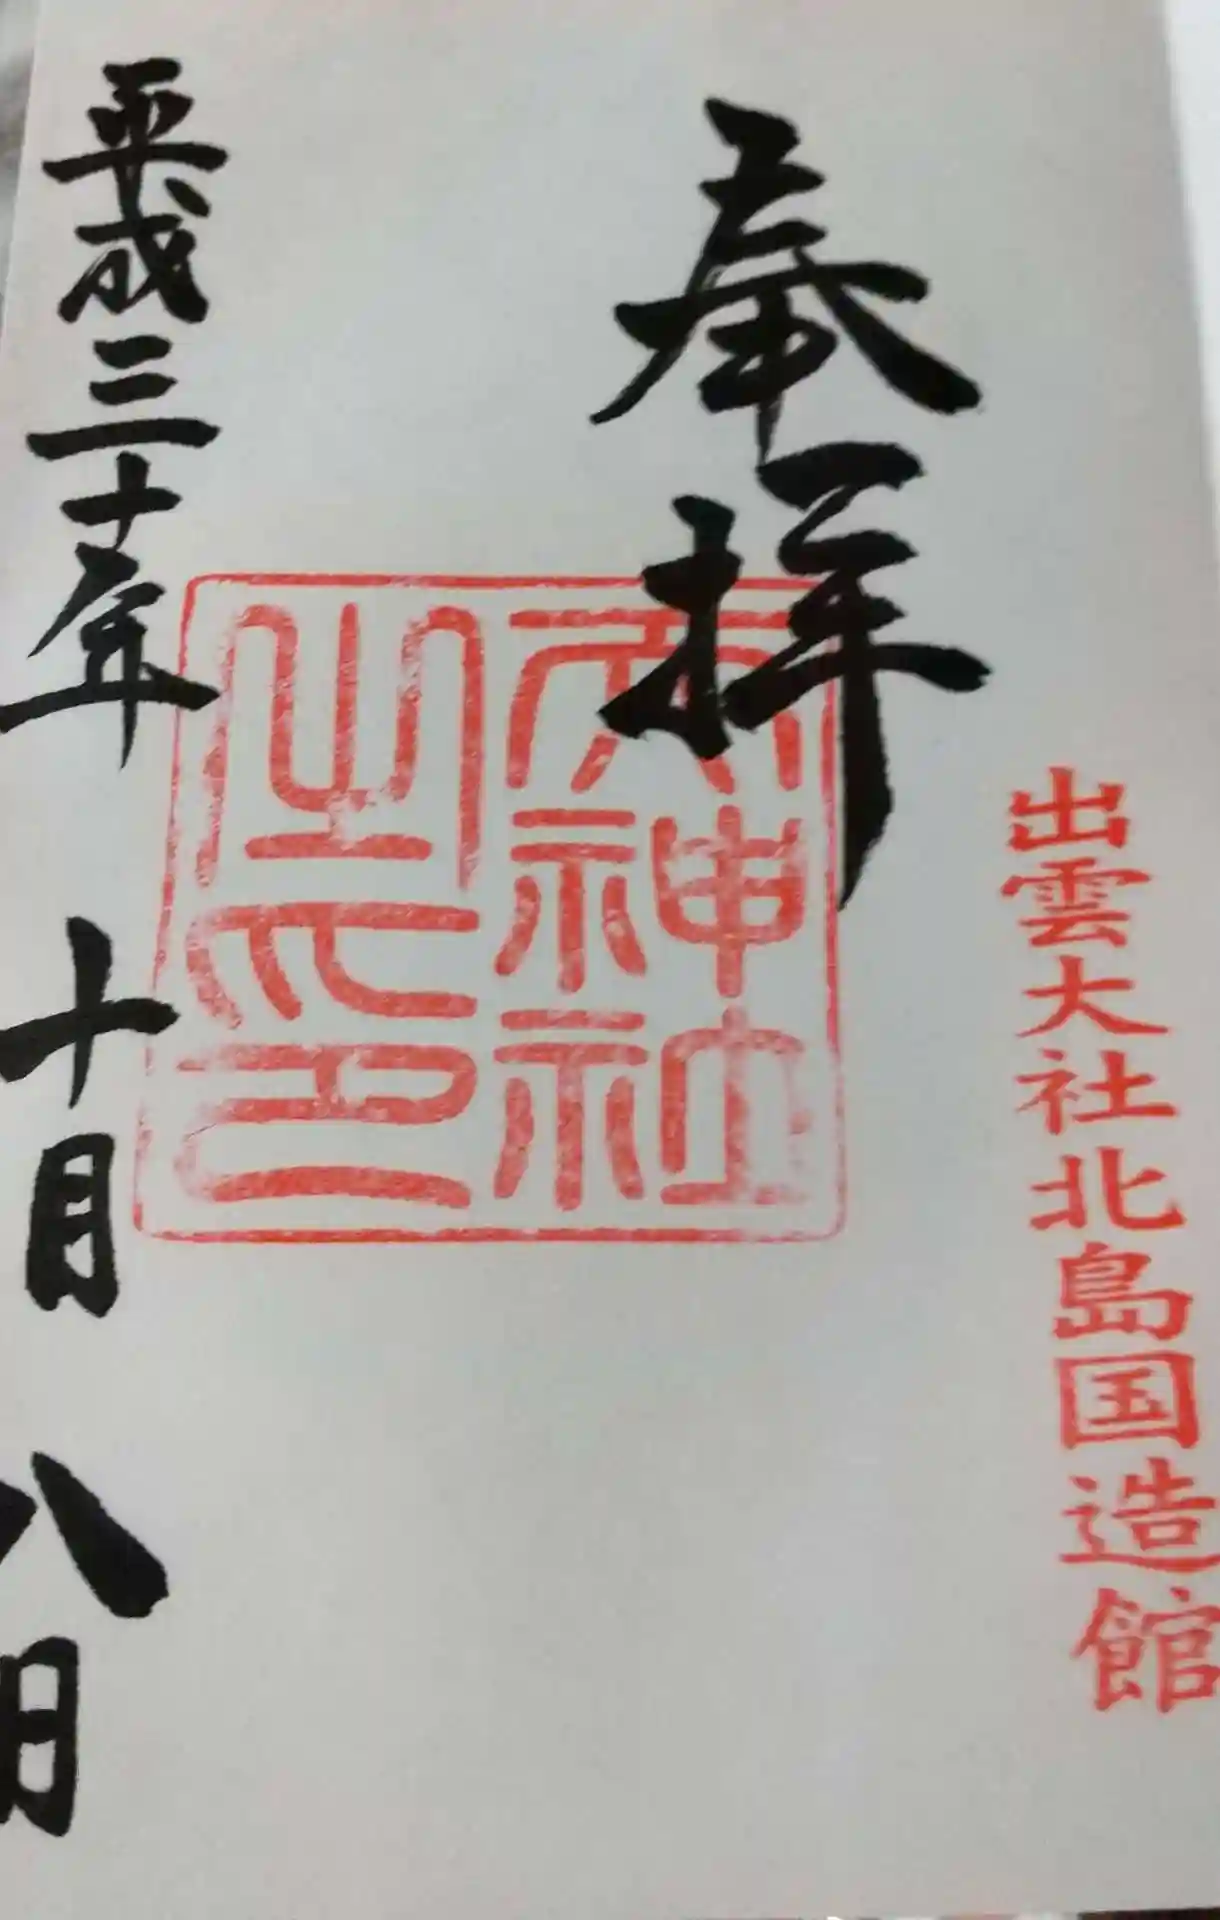 出雲大社北島国造館
奉拝
天神社
之印
平成三十年十月八日